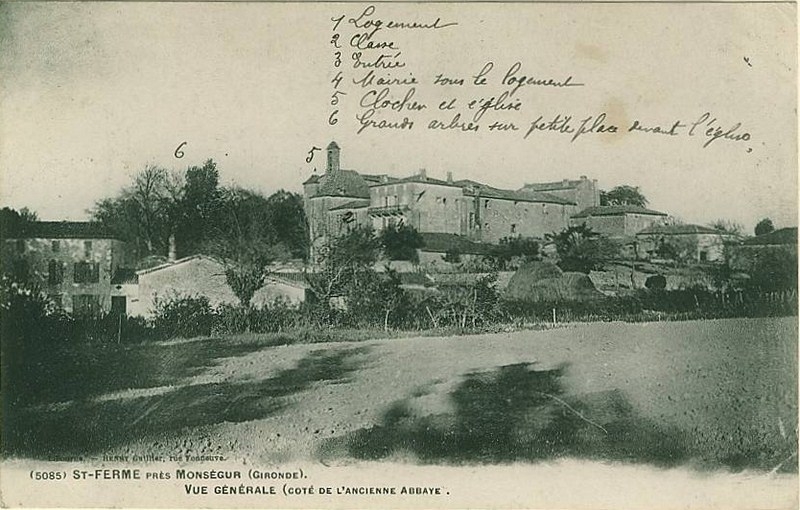 1 Logement
2 Classe
3 Entrée
4 Mairie sous le logement
5 Clocher et église
6 Grands arbres sur petite place devant l'église
6
5
Libourne. — HENRY Guillier, rue Fonneuve.
(5085) ST-FERME PRÈS MONSÉGUR (GIRONDE).
VUE GÉNÉRALE (COTÉ DE L'ANCIENNE ABBAYE .